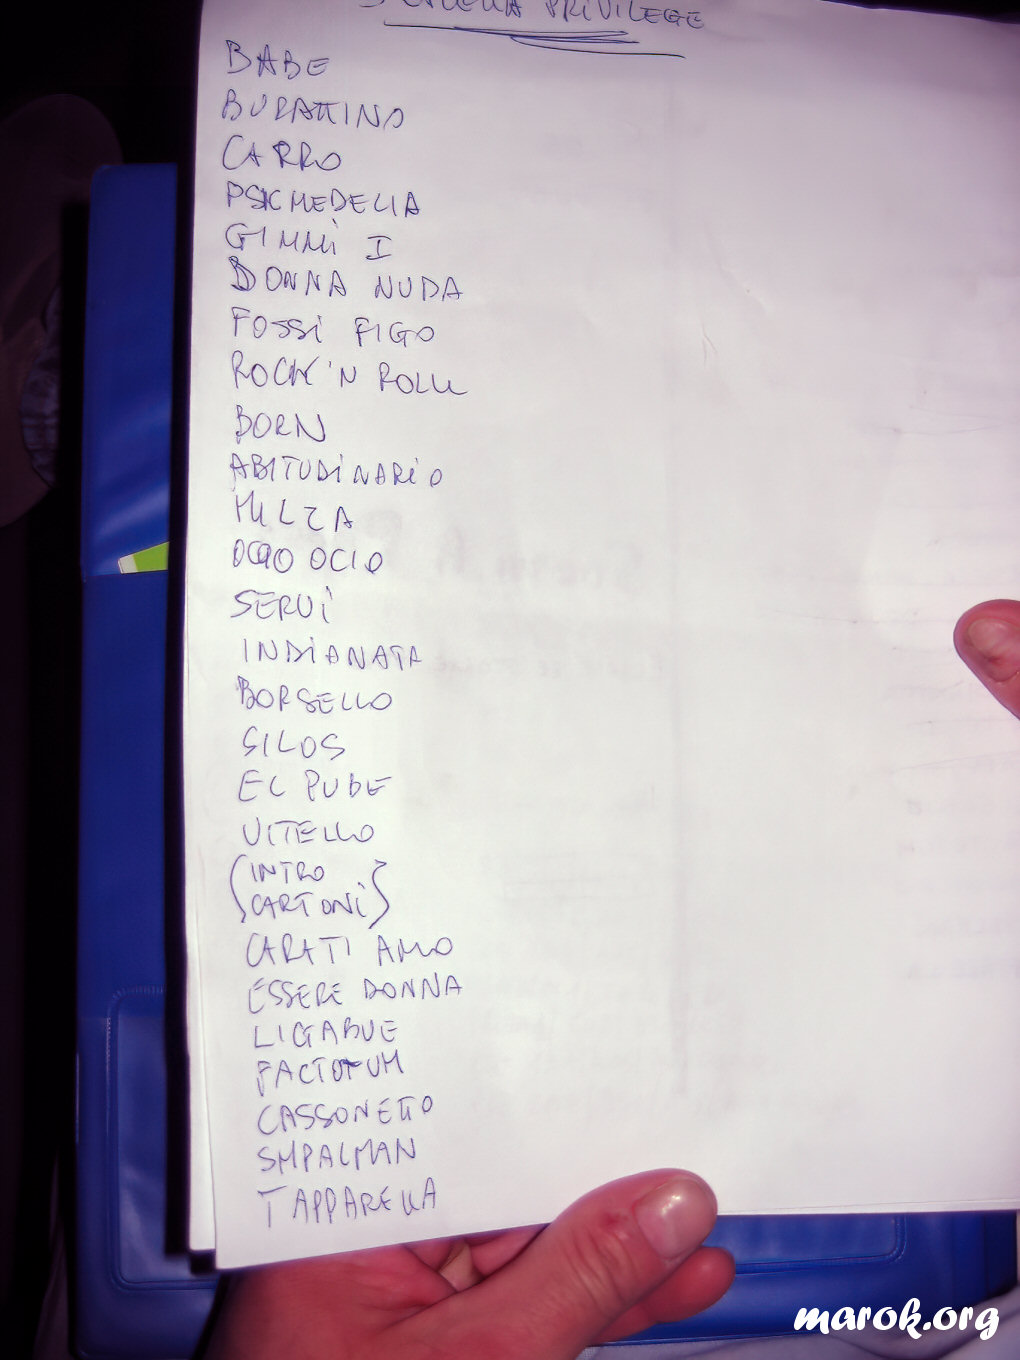 PRIVILEGE
BABE
BURATTINO
CARRO
PSICHEDELIA
GIMMI I
DONNA NUDA
FOSSI FIGO
ROCK'N ROLL
BORN
ABITUDINARIO
MILZA
OCIO OCIO
SERVI
INDIANATA
BORSELLO
SILOS
EL PUBE
VITELLO
(INTRO
CARTONI)
CARA TI AMO
ESSERE DONNA
LIGABUE
FACTOTUM
CASSONETTO
SHPALMAN
TAPPARELLA
marok.org